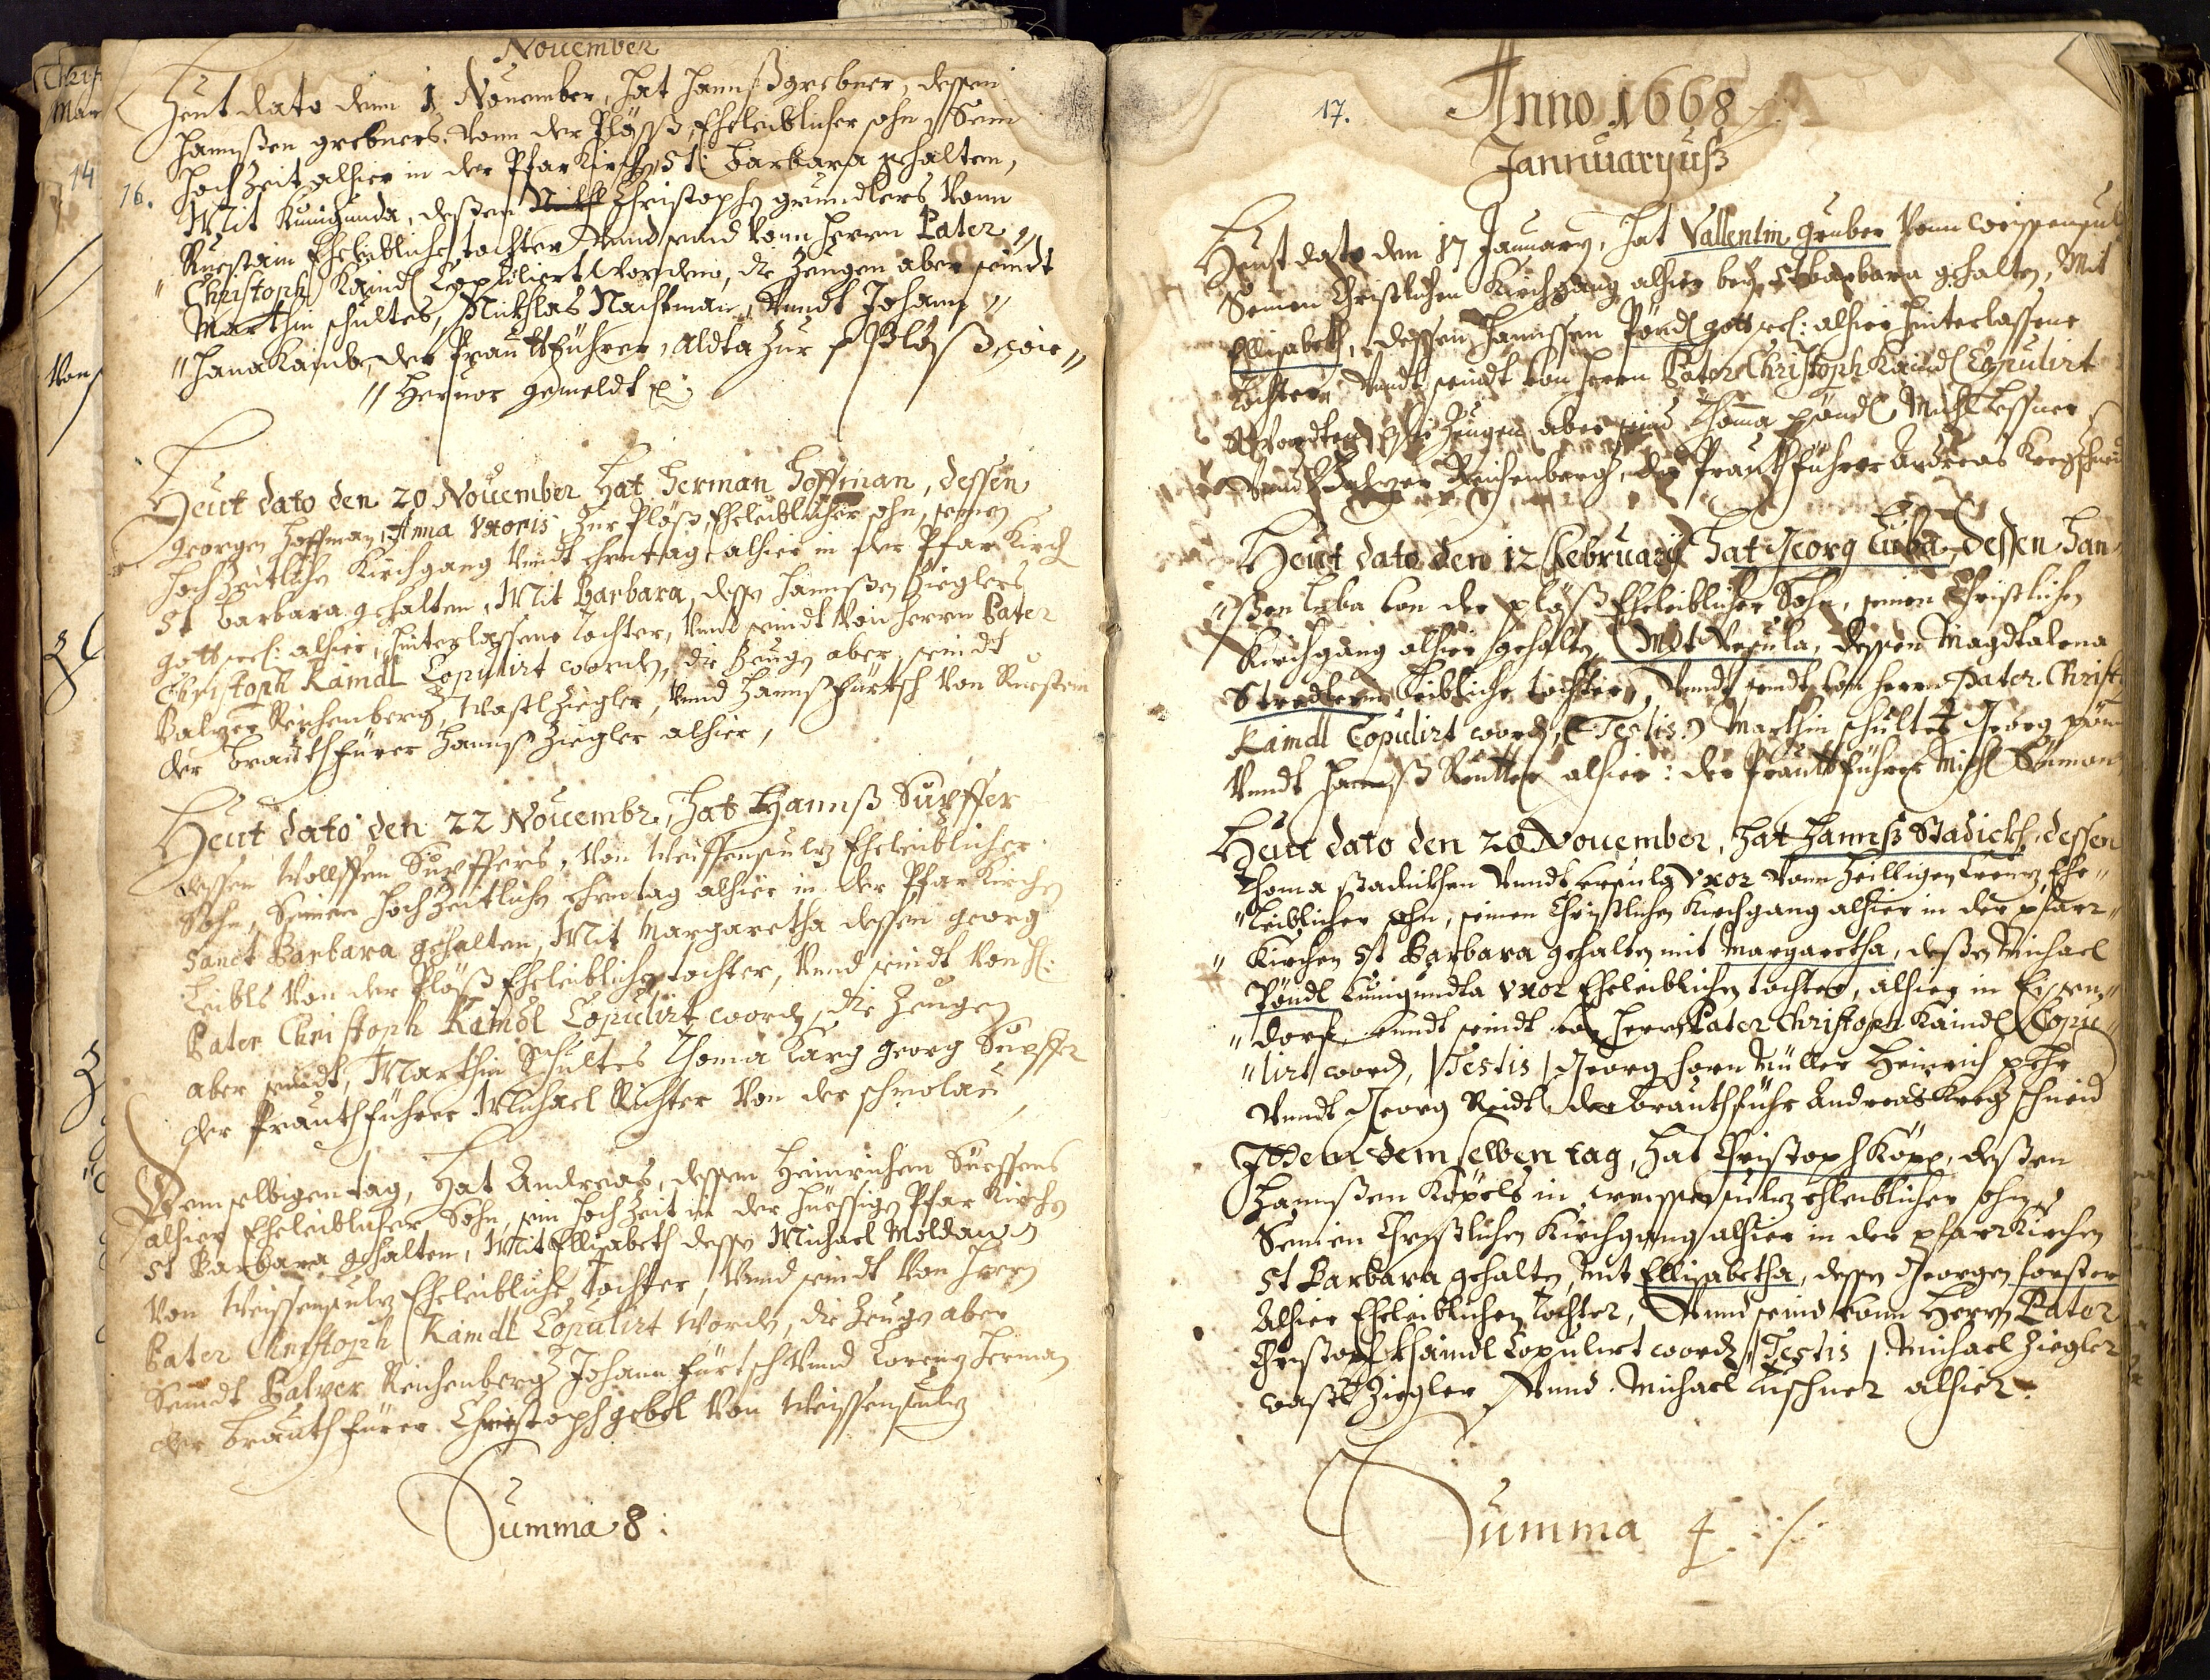 November
Heut dato denn 1 November, hat Hannß grebner, dessen
Hannßen grebners, Vonn der Plöß, Eheleiblicher sohn, Sein
Hoch Zeit alhier in der Pfar Kirch St: Barbara gehalten,
16.
Mit Kunigunda, deßen Christophs grundlers Vonn
Ruestain Eheleibliche tochter Vnnd seind Vonn herrn Pater
Christoph Kaindl Copuliert worden, die Zeugen aber seindt
Marthin schultes, Nickhlas Nachtman, Vnndt Johann
der Prauttführer, Zur Plöß, wie
Hervor gemeldt
Heut dato den 20 November Hat Herman Hoffman, dessen
Georgen Hoffman, Anna Vxoris, Zur Plöß, Eheleiblicher sohn, seinen
HochZeitlichen Kirchgang Vndt ehrntag alhier in der Pfar Kirch
St Barbara gehalten, Mit Barbara, dessen Hannßen Zieglers
gott seel: alhier, hinterlassene Tochter, Vnnd seindt Von herrn Pater
Christoph Kaindl Copulirt worden, die Zeugen aber seindt
Balzer Reichenberg, Wastl Ziegler, Vnnd Hannß fürtsch Von Ruestein
der Brauthfürer Hannß Ziegler alhier,
Heut dato den 22 Novembr, hat Hannß Supffer
dessen Wollffen Supffers, Von Weissensulz Eheleiblicher
Sohn, Seinen HochZeitlichen ehrntag alhier in der Pfar Kirchen
Sanct Barbara gehalten, Mit Margaretha dessen Georg
Leibls Von der Plöß Eheleibliche tochter, Vnnd seindt Von H:
Pater Christoph Kaindl Copulirt worden, die Zeugen
aber seindt, Marthin Schultes Thoma Karg Georg Supffer
der Prauthführer Michael Richter Von der schmolau,
Dem selbigen tag, Hat Andreas, dessen Heinrichen Süessens
alhier Eheleiblicher Sohn, sein HochZeit in der hiessigen Pfar Kirchen
St Barbara gehalten, Mit Ellisabeth dessen Michael Moldawen
Von Weissensulz Eheleibliche Tochter, Vnnd seindt Von Herrn
Pater Christoph Kaindl Copulirt worden, die Zeugen aber
Seindt Balzer Reichenberg Johann fürtsch Vnnd Lorenz Herman
der Brauthfürer Christoph gebel Von Weissensulz
Summa 8:
17.
Anno 1668
Jannuaryuß
Heut dato den 17 January, hat Vallentin Gruber Vonn weissensul
Seinen Christlichen Kirchgang alhier bey St Barbara gehalten, Mit
Ellisabeth, dessen Hannssen Pöndl gott seel: alhier hinterlassene
Tochter, Vnndt seindt von herrn Pater Christoph Kaindl Copulirt
die Zeugen aber seind Thoma Pöndl Michl
Vnndt Balzer Reichenberg, der Prauthführer Andreas
Heut dato den 12 February Hat Georg Luba, dessen Han
ßen Luba von der plöß Eheleiblicher Sohn, seinen Christlichen
Kirchgang alhier gehalten, Mit Vrsula, dessen Magdtalena
leibliche tochter, Vnndt seindt von herrn Pater Christ
Kaindl Copulirt worden, (Testis) Marthin schultes Georg pön
Vnndt Hannß Reutter alhier: der Prauttführer Michl
Heut dato den 20 November, hat Hannß Stadickh, dessen
Thoma stadickhen Vnndt Vrsula Vxor Vonn Heilligen Creüz Ehe
leiblicher sohn, seinen Christlichen Kirchgang alhier in der pfarr
Kirchen St Barbara gehalten mit Margaretha, deßen Michael
Pöndl Cunigundta Vxor Eheleiblichen tochter, alhier in Eisen
dorf, vnndt seindt von herrn Pater Christoph Kaindl Copu
lirt worden, Testis Georg horn Müller Heinrich
Vnndt Georg Reidl der Brauthführer Andreas
An dem selben tag, hat Christoph Köpp, deßen
Hannßen Köpels in weissensulz eheleiblicher sohn
Seinen Christlichen Kirchgang alhier in der pfarrKirchen
St Barbara gehalten, mit Ellisabetha, dessen Georgen forster
Alhier Eheleiblichen Tochter, Vnnd seind vonn Herrn Pater
Christoph Khaindl Copulirt worden, Testis, Michael Ziegler
wastl Ziegler Vnnd Michael Luschner alhier
Summa 4